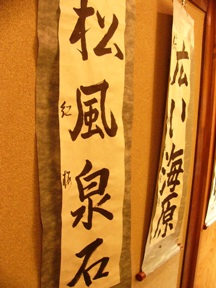 松風泉石
広い海原